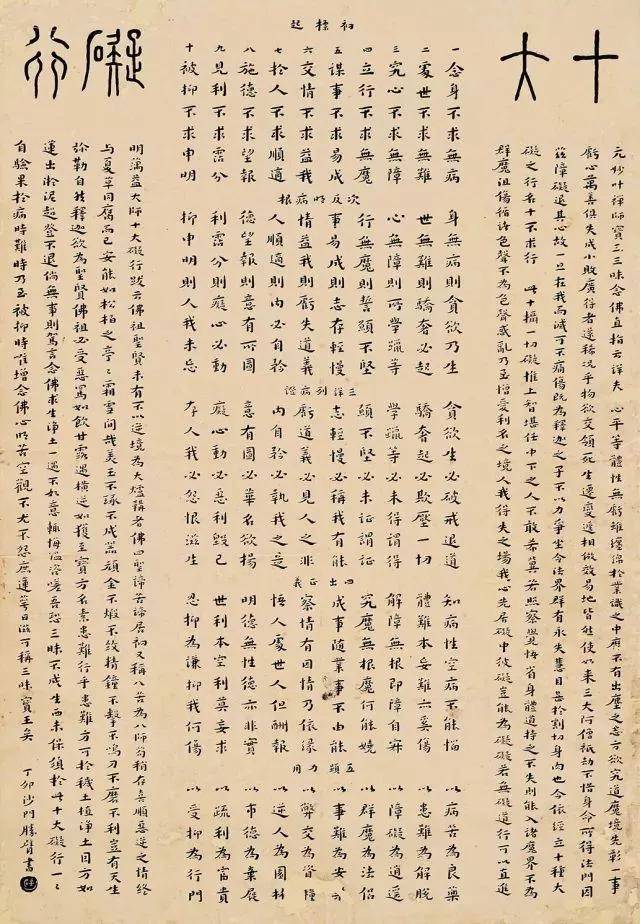 十大
礙行
元妙叶禪師寶王三昧念佛直指云詳夫 心平等體性無虧雖纏綿於業識之中靡不有出塵之志方欲究道魔境先彰一事
虧心萬善俱失成小敗廣得者還稀況乎物欲交傾死生遷變遞相倣效易地皆然使如來三大阿僧祇劫不惜身命所得法門因
茲障礙退其心故一旦在我而滅可不痛傷既為釋迦之子不以力爭坐令法界群有永失慧目甚於割切身肉也今依經立十種大
礙之行名十不求行 此十 一切礙惟上智堪任中下之人不敢希冀若照察覺悟省身體道持之不失則能入諸魔界不為
群魔沮傷循諸色聲不為色聲惑亂乃至憎愛利名之境人我得失之場我心先居礙中彼礙豈能為礙礙若無礙道行可以直進
初標起
一念身不求無病
二處世不求無難
三究心不求無障
四立行不求無魔
五謀事不求易成
六交情不求益我
七於人不求順適
八施德不求望報
九見利不求霑分
十被抑不求申明
次反明病根
身無病則貪欲乃生
世無難則驕奢必起
心無障則所學躐等
行無魔則誓願不堅
事易成則志存輕慢
情益我則虧失道義
人順適則內必自矜
德望報則意有所圖
利霑分則癡心必動
抑申明則人我未忘
三詳列病證
貪欲生必破戒退道
驕奢起必欺壓一切
學躐等必未得謂得
願不堅必未証謂証
志輕慢必稱我有能
虧道義必見人之非
內自矜必執我之是
意有圖必華名欲揚
癡心動必惡利毀己
存人我必怨恨滋生
四出正義
知病性空病不能惱
體難本妄難亦奚傷
解障無根即障自寂
究魔無根魔何能嬈
成事隨業事不由能
察情有因情乃依緣
悟人處世人但酬報
明德無性德亦非實
世利本空利莫妄求
忍抑為謙抑我何傷
五顯力用
以病苦為良藥
以患難為解脫
以障礙為逍遙
以群魔為法侶
以事難為安樂
以弊交為資糧
以逆人為園林
以市德為棄屣
以疏利為富貴
以受抑為行門
明蕅益大師十大礙行跋云佛祖聖賢未有不以逆境為大爐鞲者佛四聖諦苦諦居初又稱八苦為八師茍稍存喜順惡逆之情終
与夏草同腐而已安能如松柏之亭亭霜雪間哉美玉不琢不成器頑金不煅不致精鐘不擊不鳴刀不磨不利豈有天生
彌勒自然釋迦欲為聖賢佛祖必受惡罵如飲甘露遇橫逆如獲至寶方名素患難行乎患難方可於穢土植淨土因方如
蓮出淤泥超登不退倘無事則駕言念佛求生淨土一遇不如意輒悔怨咨嗟吾恐三昧不成生西未保須於此十大礙行一一
自驗果於病時難時乃至被抑時唯增念佛心明苦空觀不尤不怨庶蓮萼日滋可稱三昧寶王矣
丁卯沙門勝臂書